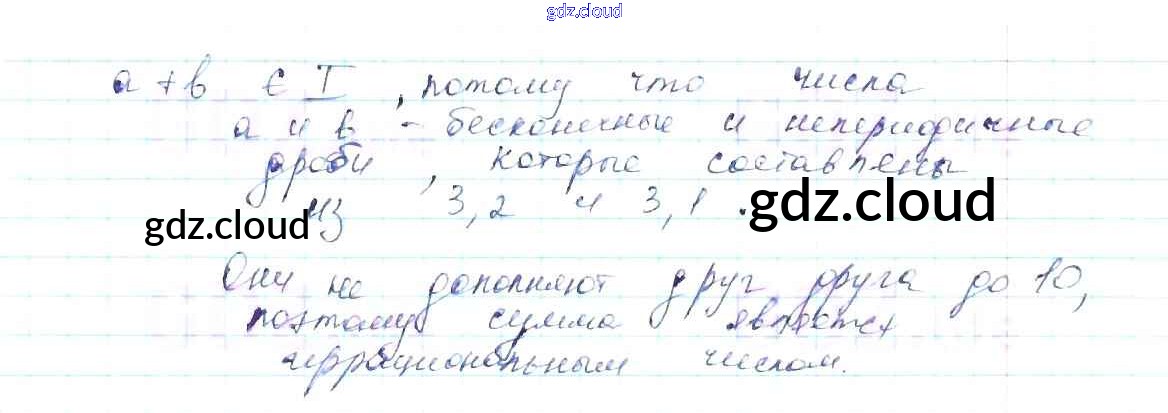 gdz.cloud
a + b ∈ I, потому что числа
a и b - бесконечные и непериодичные
дроби, которые составлены
из 3,2 и 3,1.
gdz.cloud
gdz.cloud
Они не дополняют друг друга до 10,
поэтому сумма является
иррациональным числом.